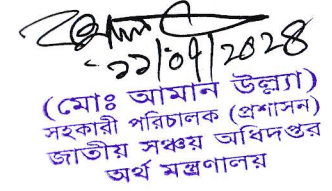 ২২/০৭/২০২৪
(মোঃ আমান উল্ল্যা)
সহকারী পরিচালক (প্রশাসন)
জাতীয় সঞ্চয় অধিদপ্তর
অর্থ মন্ত্রণালয়